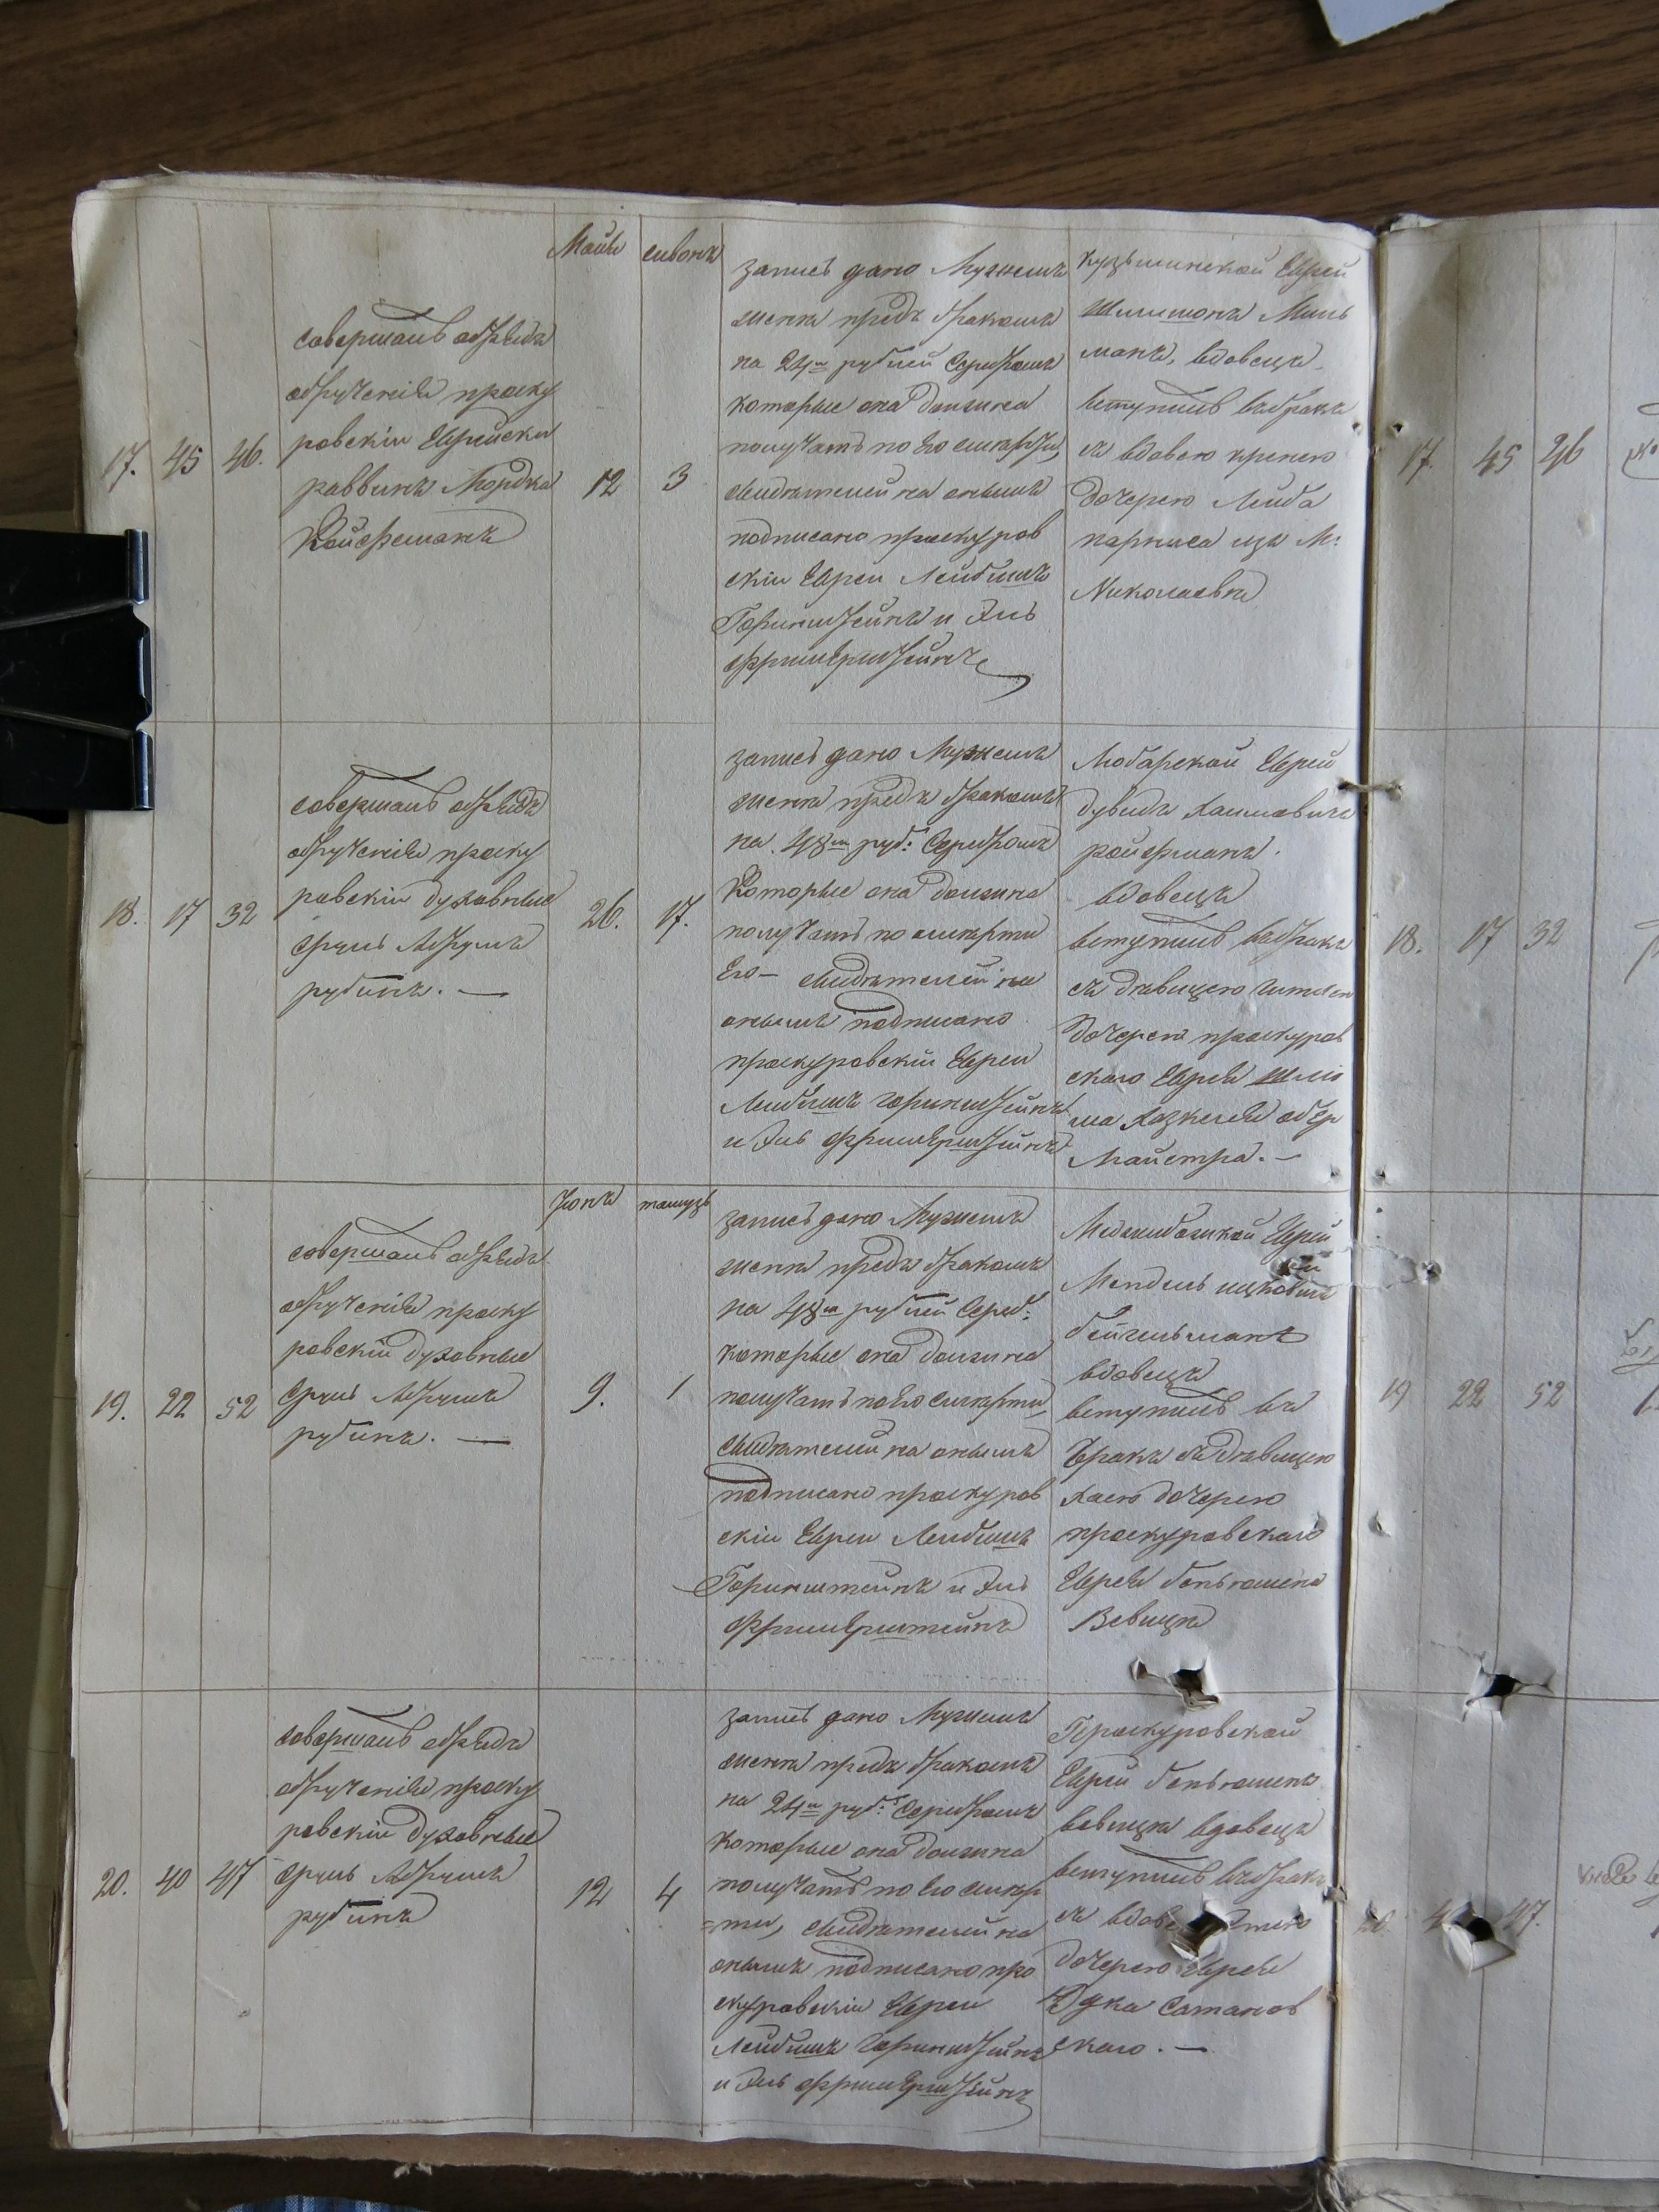 Майя сивонъ
17. 45 46.
совершалъ обрядъ
обрученія проску
ровскіи Еврейски
раввинъ Мордка
Ройфманъ
12 3
запись дано Мужемъ
жена предъ бракомъ
на 24 рублей Серебромъ
которые она должна
получать по Его смерти,
свидѣтелей на онымъ
подписано проскуров
скіи Евреи Лейбишъ
Горинштейнъ и Эль
Фришерштейнъ
Кузьминской Еврей
Шлимонъ Миль
манъ, вдовецъ
вступилъ въ бракъ
съ вдовею крейею
дочерею Лейба
парниса изъ М:
Николаевка
17. 45 46
18. 17 32
совершалъ обрядъ
обрученія проску
ровскіи духовные
Сруль Абрумъ
рубинъ. —
26. 17.
запись дано Мужемъ
жена предъ бракомъ
на 48 руб: Серебромъ
Которые она должна
получать по смерти
Его — свидѣтелей на
онымъ подписано
проскуровскіи Евреи
Лейбишъ горинштейнъ
и Эль Фришерштейнъ
Любарской Еврей
дувидъ Хаимовичъ
ройфманъ.
вдовецъ
вступилъ въ бракъ
съ дѣвицею
дочерею проскуров
скаго Еврея Шлю
ма Хазкелея обер
Майстра. —
18. 17 32
Іюнъ тамузъ
19. 22 52
совершалъ обрядъ
обрученія проску
ровскіи духовные
Сруль Абрумъ
рубинъ. —
9. 1
запись дано Мужемъ
жена предъ бракомъ
на 48 рублей Сереб:
которые она должна
получать по Его смерти,
свидѣтелей на онымъ
подписано проскуров
скіи Евреи Лейбишъ
Горинштейнъ и Эль
Фришерштейнъ
Меджибожской Еврей
Мендель ицковичъ
бейгельманъ
вдовецъ
вступилъ въ
бракъ съ дѣвицею
Хаею дочерею
проскуровскаго
Еврея беньюмена
Вевицка
19 22 52
20. 40 47
совершалъ обрядъ
обрученія проску
ровскіи духовные
Сруль Абрумъ
рубинъ
12 4
запись дано Мужемъ
жена предъ бракомъ
на 24 руб: Серебромъ
Которые она должна
получать по Его смер
=ти, свидѣтелей на
онымъ подписано про
скуровскіи Евреи
Лейбишъ горинштейнъ
и Эль Фришерштейнъ
Проскуровской
Еврей беньюменъ
вевицка вдовецъ
вступилъ въ бракъ
съ
дочерею Еврея
Юдка Сатанов
скаго. —
47.